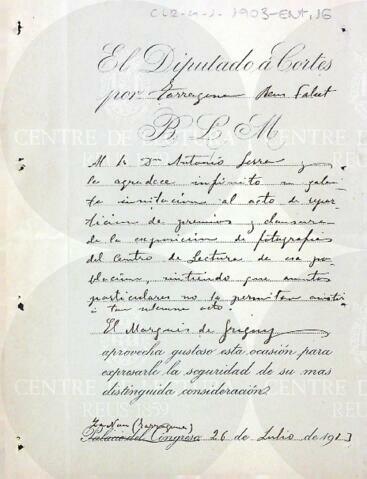 CL2-4-2. 1903-ENT, 16
El Diputado á Cortes
por Tarragona Reus Falset
B. L. M.
Al Sr Dn Antonio Serra y
le agradece infinito su galan
te invitacion al acto de repar
ticion de premios y clausura
de la exposicion de fotografias
del Centro de Lectura de esa po
blacion, sintiendo que asuntos
particulares no le permitan asistir
á tan solemne acto.
El Marques de Grigny
aprovecha gustoso esta ocasión para
expresarle la seguridad de su mas
distinguida consideración.
(Tarragona)
Palacio del Congreso 26 de Julio de 1913
CENTRE DE LECTURA
REUS 1859